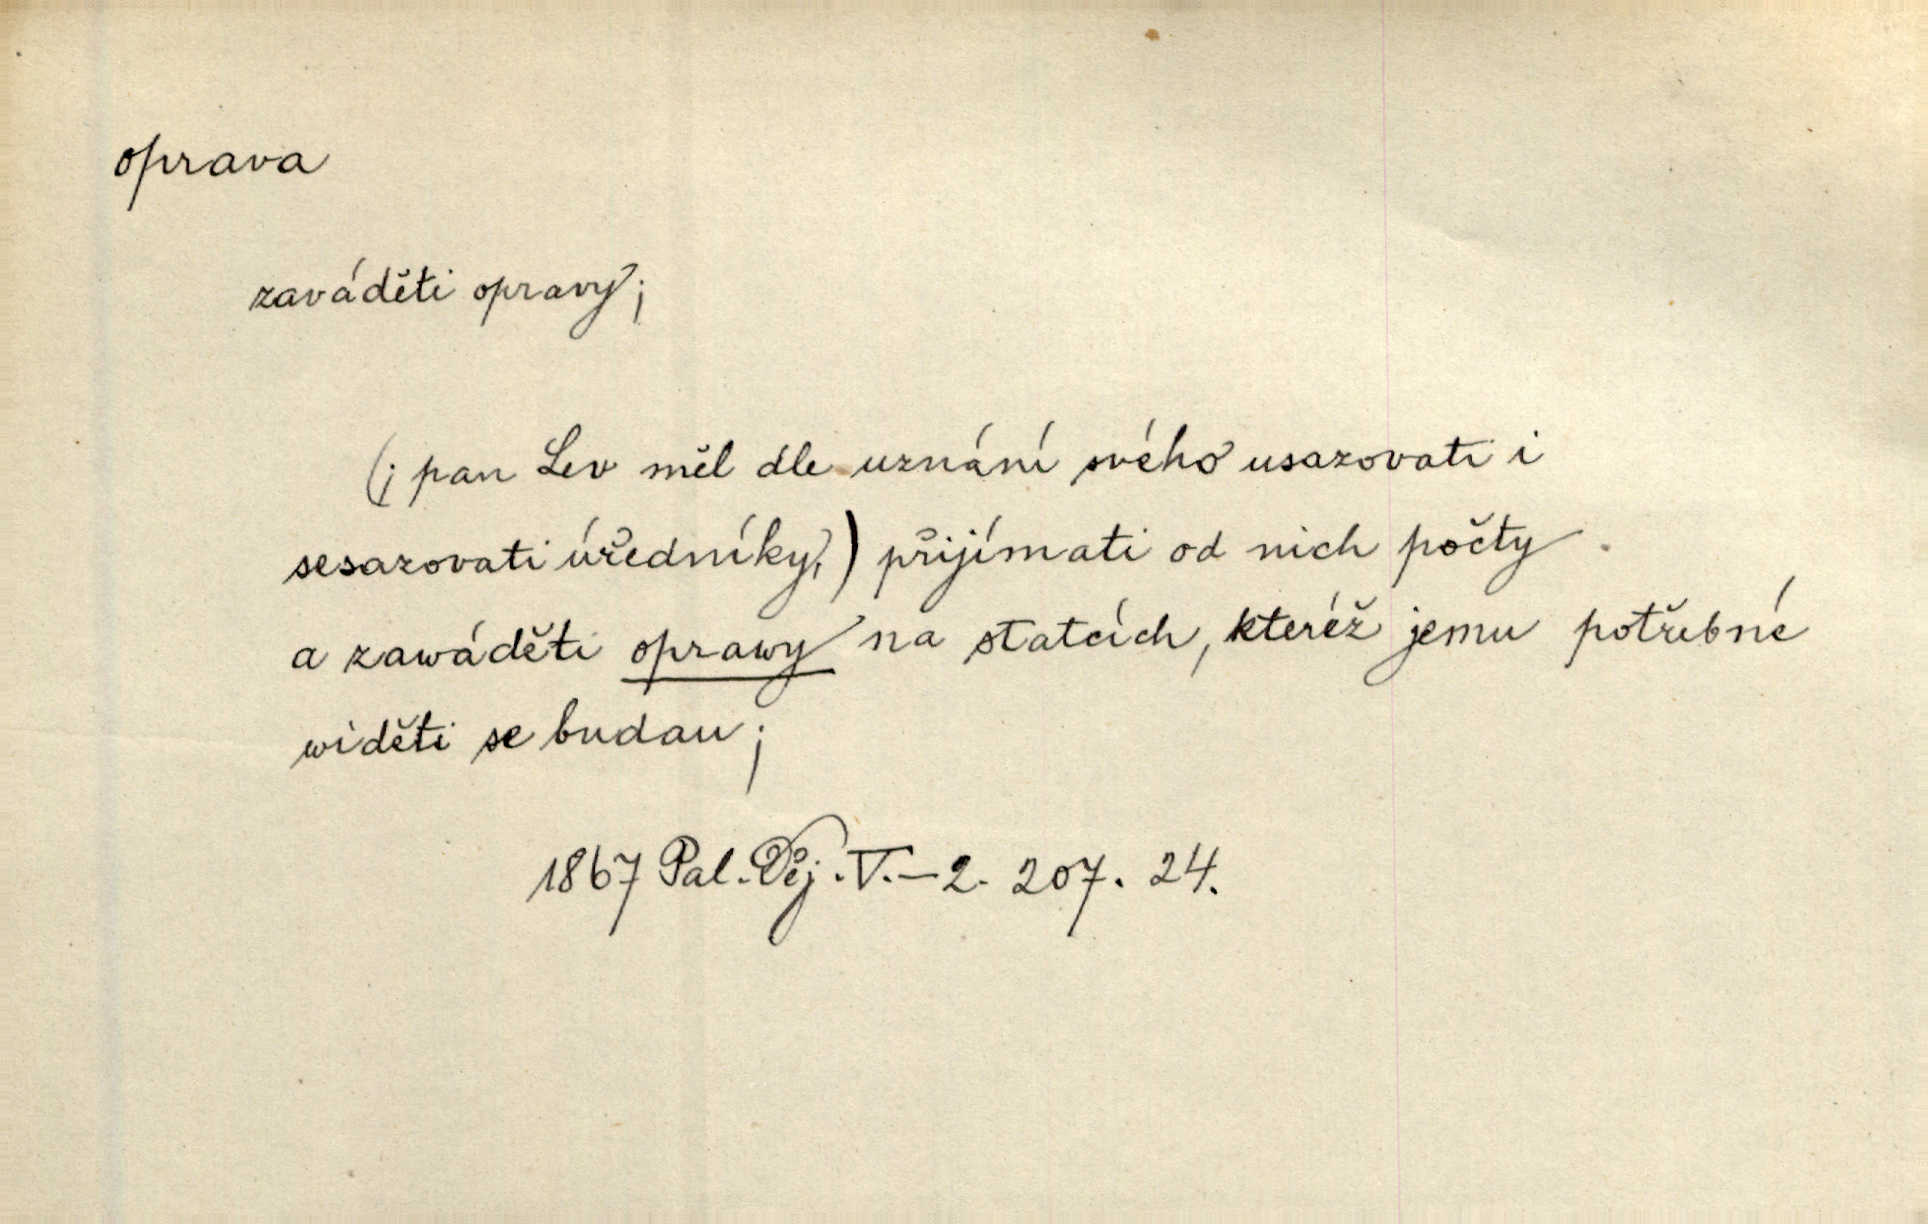 oprava
zaváděti opravy;
(; pan Lev měl dle uznání svého usazovati i
sesazovati úředníky,) přijímati od nich počty
a zawáděti oprawy na statcích, kteréž jemu potřebné
widěti se budau;
1867 Pal. Děj. V.–2. 207. 24.